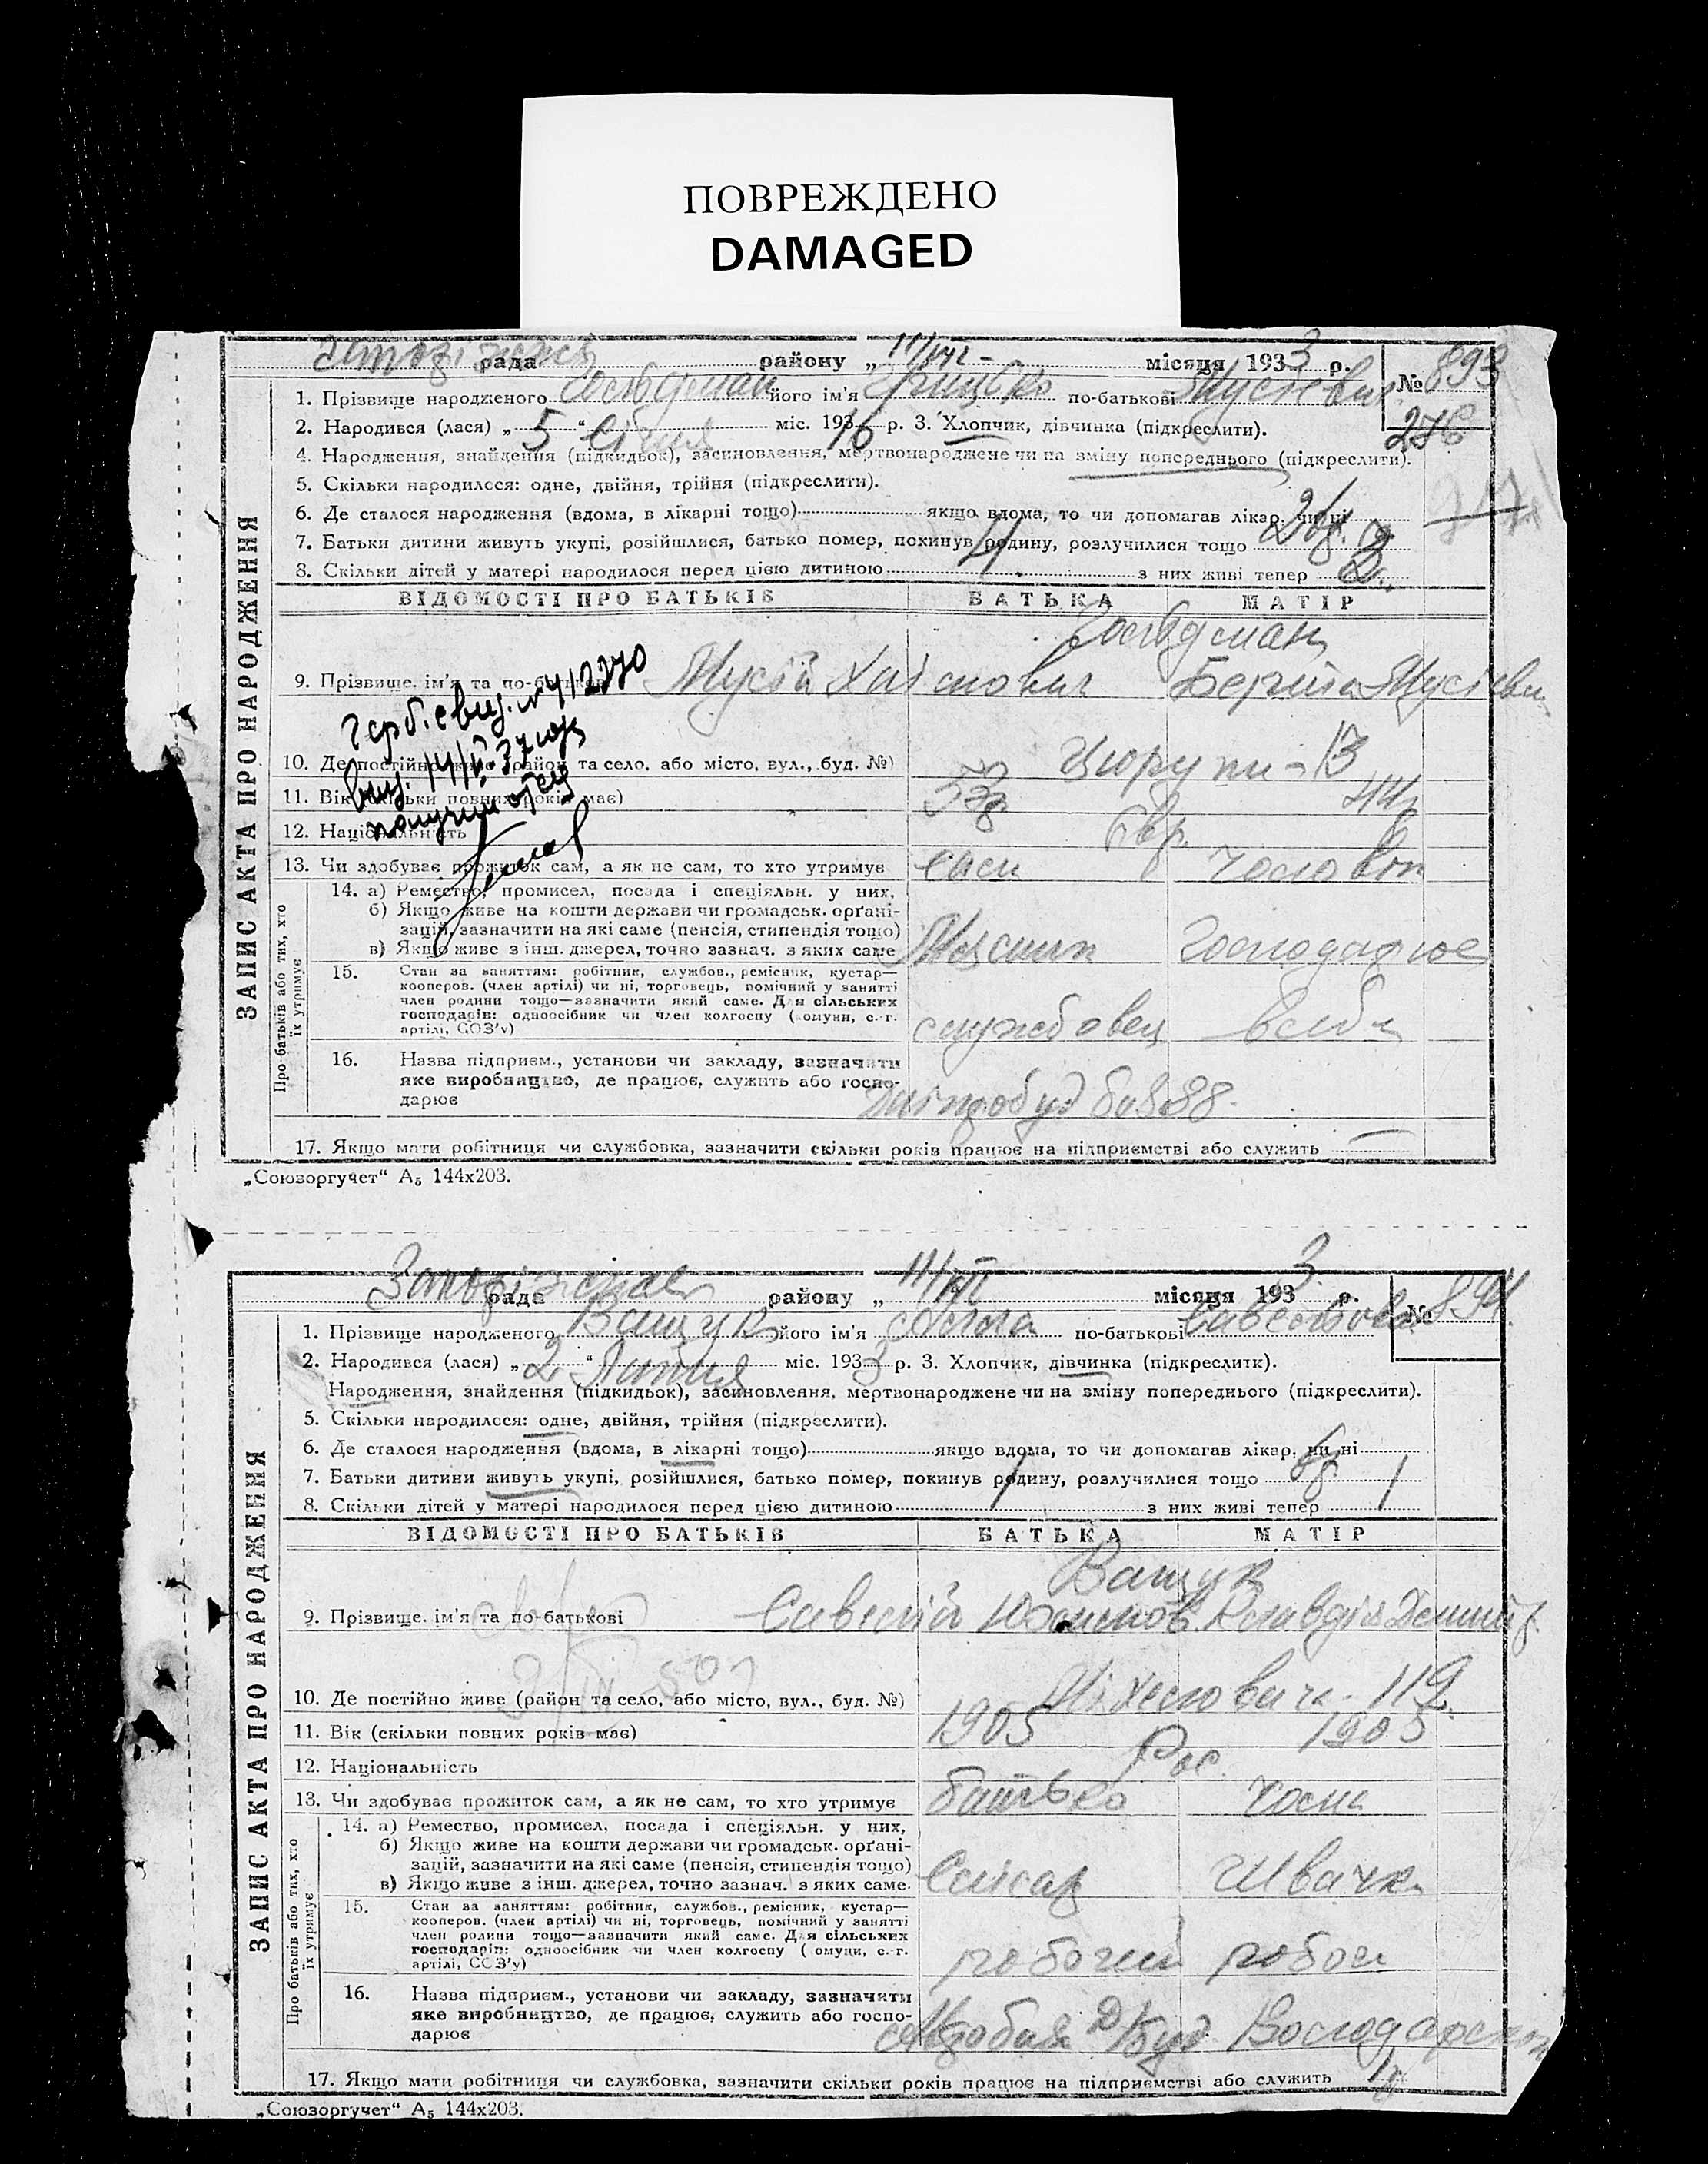 ПОВРЕЖДЕНО
DAMAGED
рада району „11/VII - місяця 1933 р. № 893
1. Прізвище народженого Гольдман його ім'я Грицько по-батькові Мусієвич
276
2. Народився (лася) „5“ Січня міс. 1916 р. 3. Хлопчик, дівчинка (підкреслити).
4. Народження, знайдення (підкидьок), засиновлення, мертвонароджене чи на зміну попереднього (підкреслити).
5. Скільки народилося: одне, двійня, трійня (підкреслити).
6. Де сталося народження (вдома, в лікарні тощо) якщо вдома, то чи допомагав лікар. чи ні
7. Батьки дитини живуть укупі, розійшлися, батько помер, покинув родину, розлучилися тощо
8. Скільки дітей у матері народилося перед цією дитиною 4 з них живі тепер 3
ЗАПИС АКТА ПРО НАРОДЖЕННЯ
ВІДОМОСТІ ПРО БАТЬКІВ БАТЬКА МАТІР
Гольдман
9. Прізвище, ім'я та по-батькові Мусій Хаїмович Берта Мусієвн
Герб. свид. №412270
выд. 14/V-37 года
получил отец
10. Де постійно живе (район та село, або місто, вул., буд. №) Цюрупи-13
11. Вік (скільки повних років має) 53 44
12. Національність Євр.
13. Чи здобуває прожиток сам, а як не сам, то хто утримує сам чолов
Про батьків або тих, хто їх утримує
14. а) Ремество, промисел, посада і спеціяльн. у них,
б) Якщо живе на кошти держави чи громадськ. орґані-
зацій, зазначити на які саме (пенсія, стипендія тощо)
в) Якщо живе з інш. джерел, точно зазнач. з яких саме
Господарює
15. Стан за заняттям: робітник, службов., ремісник, кустар—
кооперов. (член артілі) чи ні, торговець, помічний у занятті
член родини тощо—зазначити який саме. Для сільських
господарів: одноосібник чи член колгоспу (комуни, с.-г.
артілі, СОЗ'у)
службовец
16. Назва підприєм., установи чи закладу, зазначити
яке виробництво, де працює, служить або госпо-
дарює
Дніпробуд
17. Якщо мати робітниця чи службовка, зазначити скільки років працює на підприємстві або служить
„Союзоргучет“ А5 144х203.
рада району „11/VII місяця 1933 р. № 894
1. Прізвище народженого Ващук його ім'я по-батькові Савеловна
2. Народився (лася) „2“ Липня міс. 1933 р. 3. Хлопчик, дівчинка (підкреслити).
Народження, знайдення (підкидьок), засиновлення, мертвонароджене чи на зміну попереднього (підкреслити).
5. Скільки народилося: одне, двійня, трійня (підкреслити).
6. Де сталося народження (вдома, в лікарні тощо) якщо вдома, то чи допомагав лікар. чи ні
7. Батьки дитини живуть укупі, розійшлися, батько помер, покинув родину, розлучилися тощо
8. Скільки дітей у матері народилося перед цією дитиною 1 з них живі тепер 1
ЗАПИС АКТА ПРО НАРОДЖЕННЯ
ВІДОМОСТІ ПРО БАТЬКІВ БАТЬКА МАТІР
Ващук
9. Прізвище, ім'я та по-батькові Савелій Клавдія Дмит
10. Де постійно живе (район та село, або місто, вул., буд. №)
11. Вік (скільки повних років має) 1905 1905
12. Національність Рос.
13. Чи здобуває прожиток сам, а як не сам, то хто утримує батько
Про батьків або тих, хто їх утримує
14. а) Ремество, промисел, посада і спеціяльн. у них,
б) Якщо живе на кошти держави чи громадськ. орґані-
зацій, зазначити на які саме (пенсія, стипендія тощо)
в) Якщо живе з інш. джерел, точно зазнач. з яких саме.
Слісар Швачка
15. Стан за заняттям: робітник, службов., ремісник, кустар—
кооперов. (член артілі) чи ні, торговець, помічний у занятті
член родини тощо—зазначити який саме. Для сільських
господарів: одноосібник чи член колгоспу (комуни, с.-г.
артілі, СОЗ'у)
робочий робоч
16. Назва підприєм., установи чи закладу, зазначити
яке виробництво, де працює, служить або госпо-
дарює
17. Якщо мати робітниця чи службовка, зазначити скільки років працює на підприємстві або служить
„Союзоргучет“ А5 144х203.